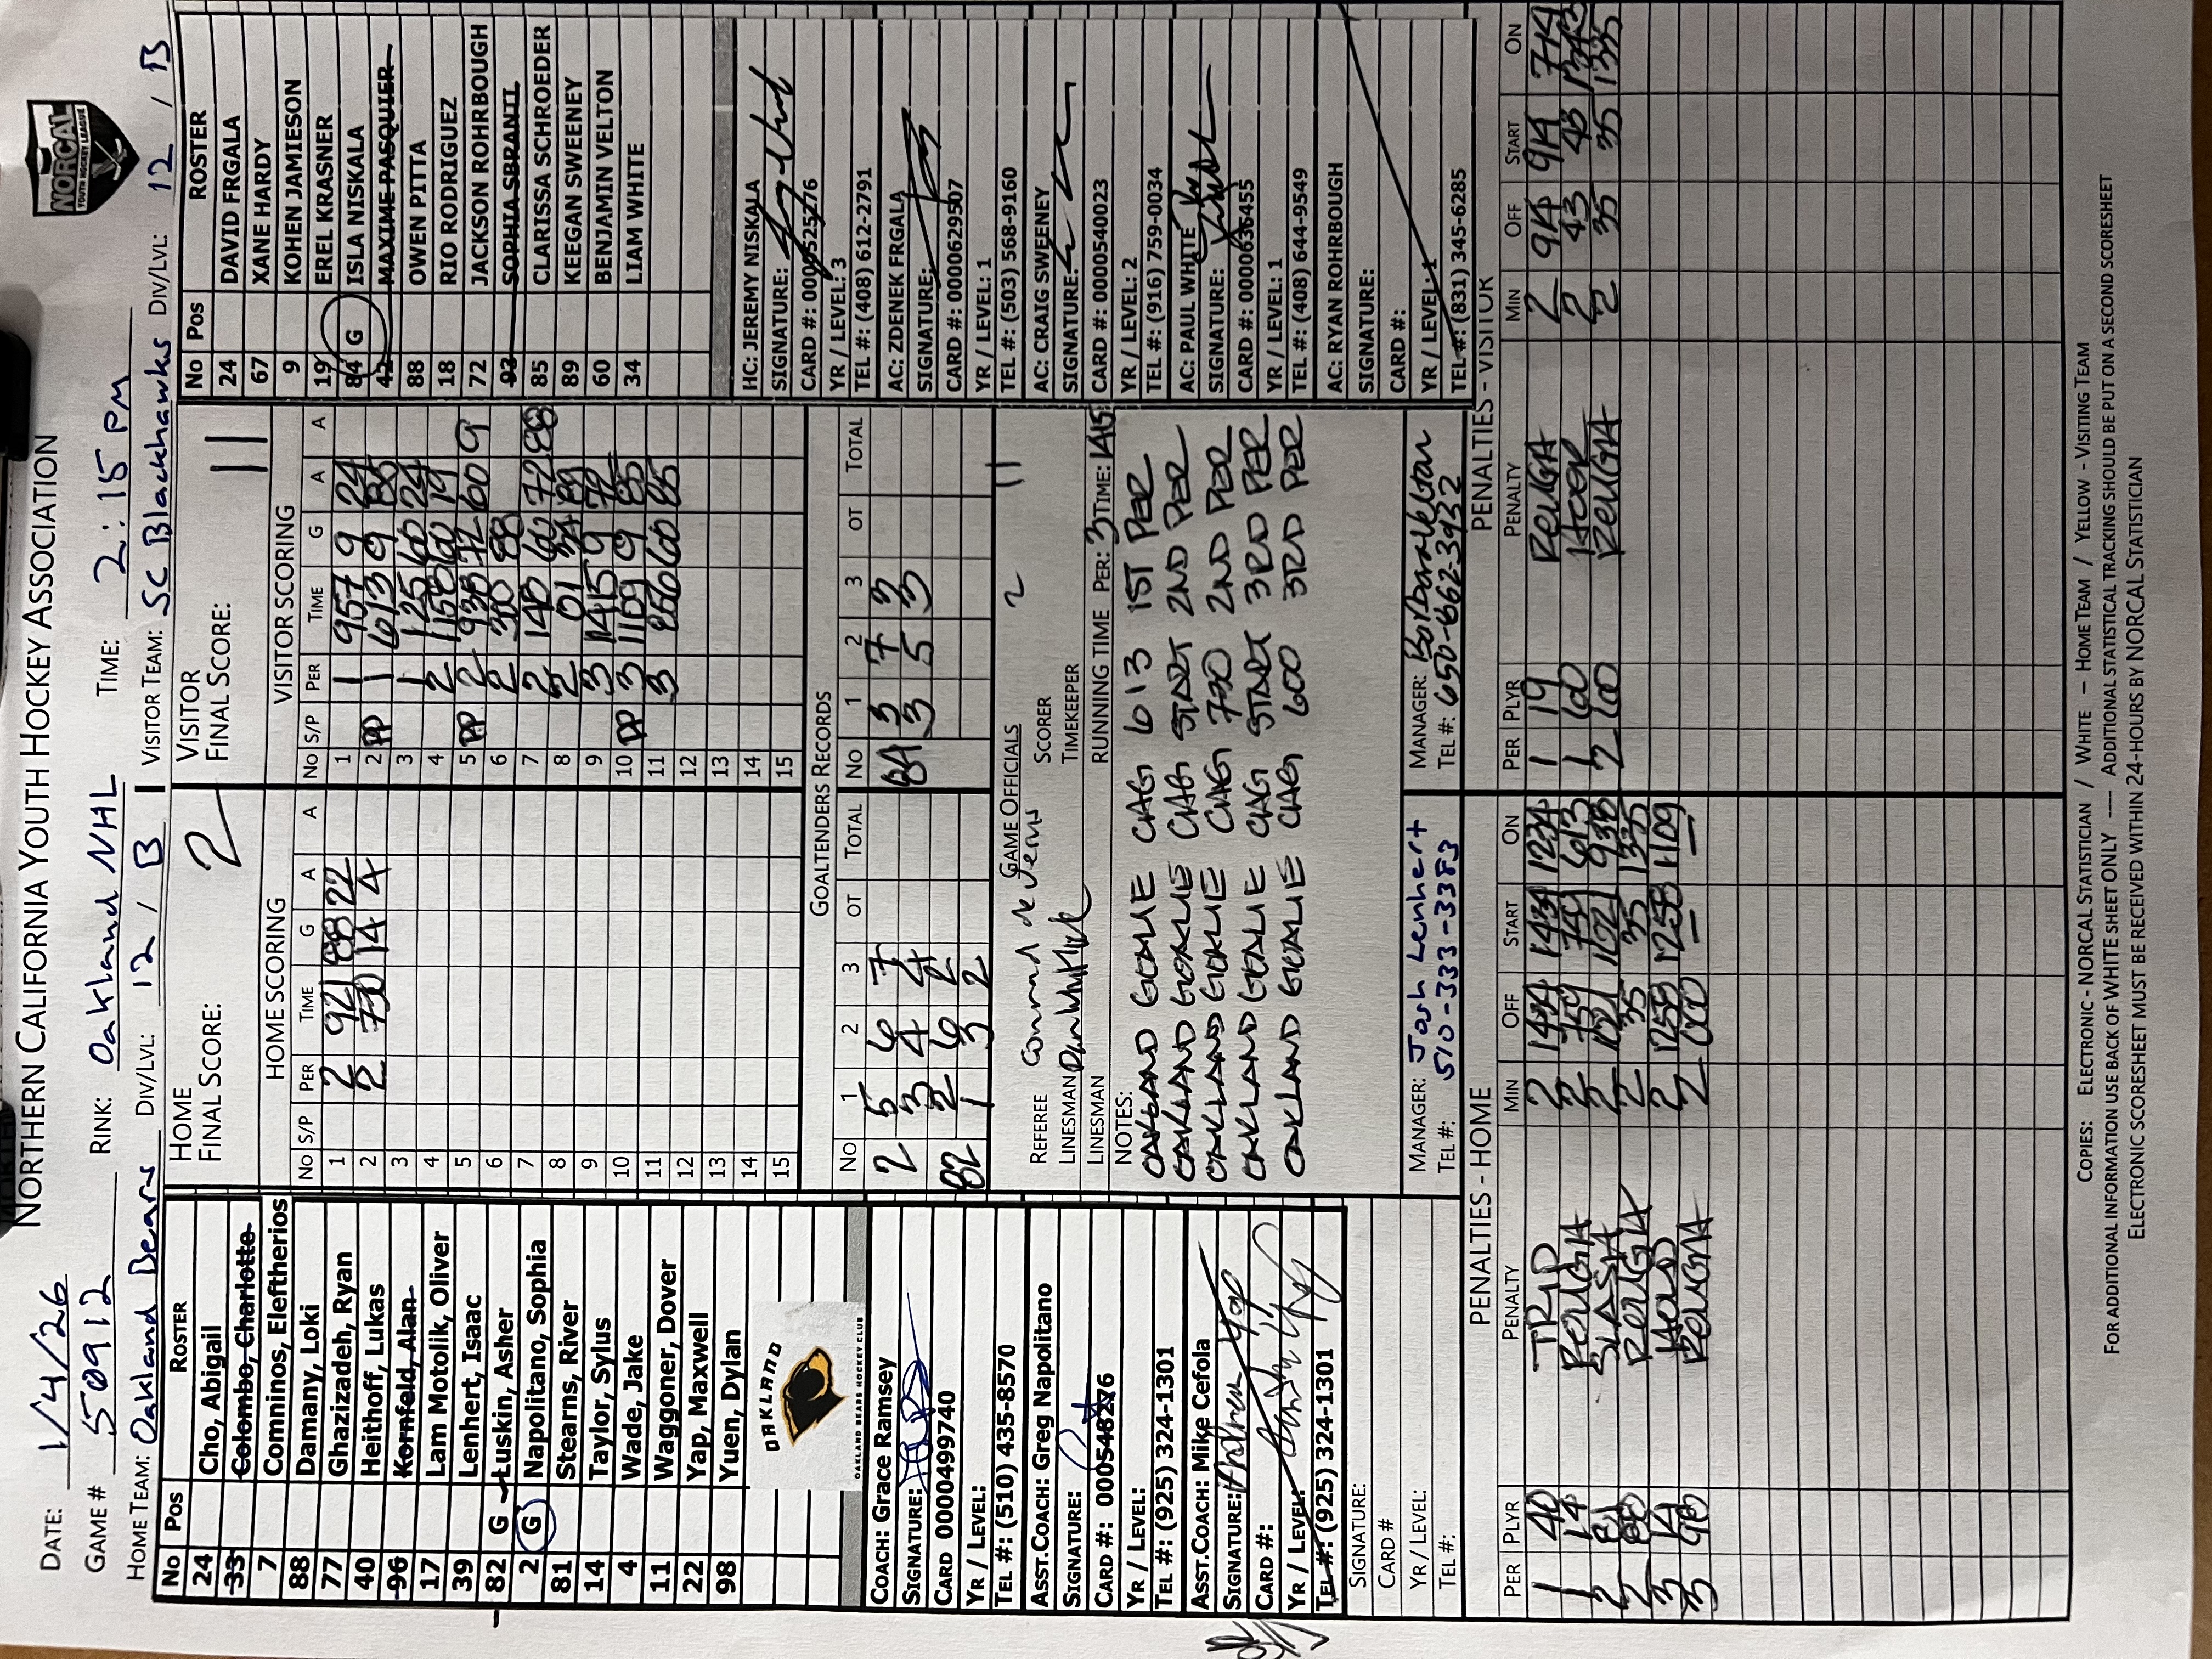 NORTHERN CALIFORNIA YOUTH HOCKEY ASSOCIATION
NORCAL
YOUTH HOCKEY LEAGUE
DATE: 1/4/26
GAME # 50912 RINK: Oakland NHL TIME: 2:15 pm
HOME TEAM: Oakland Bears DIV/LVL: 12 / B VISITOR TEAM: SC Blackhawks DIV/LVL: 12 / B
No Pos ROSTER
24 Cho, Abigail
33 Colombo, Charlotte
7 Comninos, Eleftherios
88 Damany, Loki
77 Ghazizadeh, Ryan
40 Heithoff, Lukas
96 Kornfeld, Alan
17 Lam Motolik, Oliver
39 Lenhert, Isaac
82 G Luskin, Asher
2 G Napolitano, Sophia
81 Stearns, River
14 Taylor, Sylus
4 Wade, Jake
11 Waggoner, Dover
22 Yap, Maxwell
98 Yuen, Dylan
OAKLAND
OAKLAND BEARS HOCKEY CLUB
COACH: Grace Ramsey
SIGNATURE:
CARD 0000499740
YR / LEVEL:
TEL #: (510) 435-8570
ASST.COACH: Greg Napolitano
SIGNATURE:
CARD #: 000548276
YR / LEVEL:
TEL #: (925) 324-1301
ASST.COACH: Mike Cefola
SIGNATURE: Andrew Yap
CARD #:
YR / LEVEL:
TEL #: (925) 324-1301
SIGNATURE:
CARD #
YR / LEVEL:
TEL #:
HOME
FINAL SCORE: 2
HOME SCORING
No S/P PER TIME G A A
1 2 921 88 22
2 2 730 14 4
3
4
5
6
7
8
9
10
11
12
13
14
15
VISITOR
FINAL SCORE: 11
VISITOR SCORING
No S/P PER TIME G A A
1 1 957 9 24
2 PP 1 613 9 85
3 1 125 60 24
4 2 1150 60 19
5 PP 2 938 72 60 9
6 2 300 88
7 2 140 60 72 88
8 2 01 34 89
9 3 1415 9 72
10 PP 3 1109 9 85
11 3 850 60 85
12
13
14
15
GOALTENDERS RECORDS
No 1 2 3 OT TOTAL No 1 2 3 OT TOTAL
2 5 6 7 84 3 7 3
3 4 4 3 5 3
82 2 6 2
1 3 2
GAME OFFICIALS
2 11
REFEREE Conrad de Jens SCORER
LINESMAN TIMEKEEPER
LINESMAN RUNNING TIME PER: 3 TIME: 1415
NOTES:
OAKLAND GOALIE CHG 613 1ST PER
OAKLAND GOALIE CHG START 2ND PER
OAKLAND GOALIE CHG 730 2ND PER
OAKLAND GOALIE CHG START 3RD PER
OAKLAND GOALIE CHG 600 3RD PER
MANAGER: Josh Lenhert
TEL #: 510-333-3383
MANAGER: Barbara Velton
TEL #: 650-862-3932
No Pos ROSTER
24 DAVID FRGALA
67 XANE HARDY
9 KOHEN JAMIESON
19 EREL KRASNER
84 G ISLA NISKALA
42 MAXIME PASQUIER
88 OWEN PITTA
18 RIO RODRIGUEZ
72 JACKSON ROHRBOUGH
93 SOPHIA SBRANTI
85 CLARISSA SCHROEDER
89 KEEGAN SWEENEY
60 BENJAMIN VELTON
34 LIAM WHITE
HC: JEREMY NISKALA
SIGNATURE:
CARD #: 0000525276
YR / LEVEL: 3
TEL #: (408) 612-2791
AC: ZDENEK FRGALA
SIGNATURE:
CARD #: 0000629507
YR / LEVEL: 1
TEL #: (503) 568-9160
AC: CRAIG SWEENEY
SIGNATURE:
CARD #: 0000540023
YR / LEVEL: 2
TEL #: (916) 759-0034
AC: PAUL WHITE
SIGNATURE:
CARD #: 0000636455
YR / LEVEL: 1
TEL #: (408) 644-9549
AC: RYAN ROHRBOUGH
SIGNATURE:
CARD #:
YR / LEVEL: 1
TEL #: (831) 345-6285
PENALTIES - HOME
PER PLYR PENALTY MIN OFF START ON
1 40 TRIP 2 1434 1434 1234
14 ROUGH 2 759 759 613
2 81 SLASH 2 1021 1021 938
2 88 ROUGH 2 35 35 1335
3 14 HOLD 2 1258 1258 1109
3 98 ROUGH 2 600 — —
PENALTIES - VISITOR
PER PLYR PENALTY MIN OFF START ON
1 19 ROUGH 2 914 914 714
1 60 HOOK 2 43 43 1343
2 60 ROUGH 2 35 35 1335
COPIES: ELECTRONIC - NORCAL STATISTICIAN / WHITE – HOME TEAM / YELLOW - VISITING TEAM
FOR ADDITIONAL INFORMATION USE BACK OF WHITE SHEET ONLY ---- ADDITIONAL STATISTICAL TRACKING SHOULD BE PUT ON A SECOND SCORESHEET
ELECTRONIC SCORESHEET MUST BE RECEIVED WITHIN 24-HOURS BY NORCAL STATISTICIAN